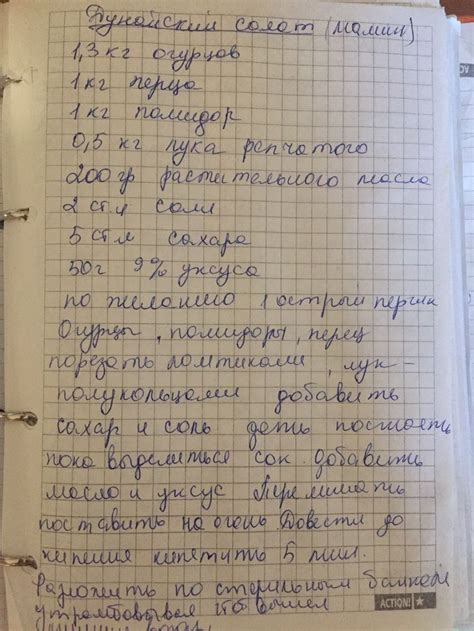 Дунайский салат (мамин)
1,3 кг огурцов
1 кг перца
1 кг помидор
0,5 кг лука репчатого
200 гр растительного масла
2 ст.л соли
5 ст л сахара
50 г 9% уксуса
по желанию 1 острый перчик
Огурцы, помидоры, перец
порезать ломтиками, лук -
полукольцами добавить
сахар и соль дать постоять
пока выделиться сок. добавить
масло и уксус Перемешать
поставить на огонь Довести до
кипения кипятить 5 мин.
Разложить по стерильным банкам
утрамбовывая чтоб вышел
ACTION!